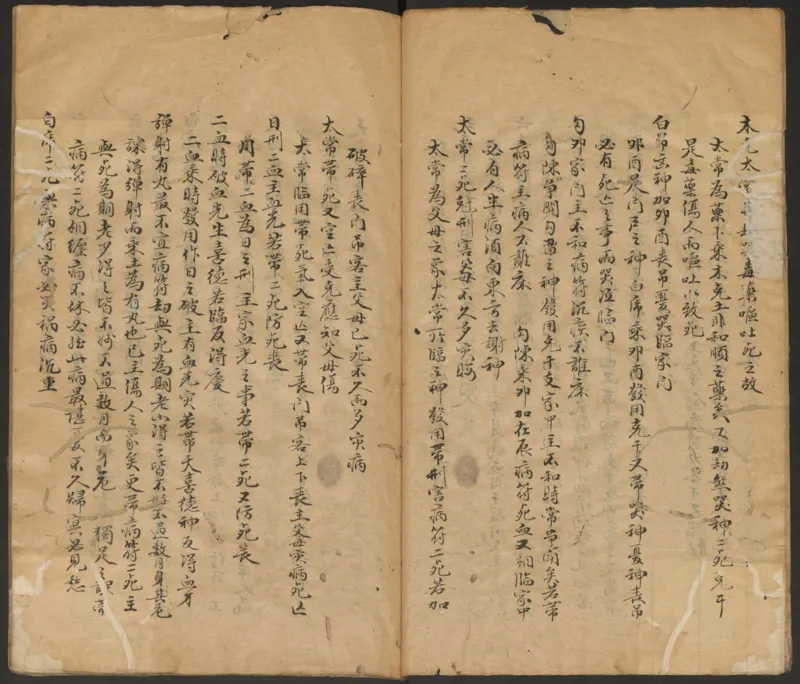 木克太常毒藥嘔吐死之故
太常為藥下乘木克土非和順之藥矣又加劫煞哭神二死克干
是毒藥傷人而嘔吐以致死
白吊宮神加卯酉喪吊憂哭臨家門
卯酉是門戶之神白虎乘卯酉發用克干又帶哭神憂神喪吊
必有死亡之事而哭泣臨門
勾卯家門主不和病符沉疾不離床
勾陳爭鬪勾留之神發用克干支家中主不和時常吊鬧矣若帶
病符主病人不離床 勾陳乘卯加在辰病符死血又相臨家中
必有人生病須向東方去謝神
太常二死刑害父母不久多哭
太常為父母之象太常所臨之神發用帶刑害病符二死若加
破碎喪門吊客主父母已死不久而多哭病
太常帶死又空亡受克應知父母傷
太常臨用帶死氣入空亡又帶喪門吊客上下喪主父母哭病死亡
日刑二血主血光若帶二死防死喪
用帶二血為日之刑主家血光之事若帶二死又防死喪
二血時破血光生喜德若臨反得慶
二血乘時發用作日之破主有血光災若帶天喜德神反得血身
彈射有丸最不宜病符劫與死為期老小得之皆不好不過數月身其危
課得彈射而乘土為有丸也已主傷人之象矣更帶病符二死主
與死為期老少得之皆不好不過數月而身危 獨足之課
病符二死相纏病不休此病最不久歸冥必見愁
白二死病符家必災病病沉重